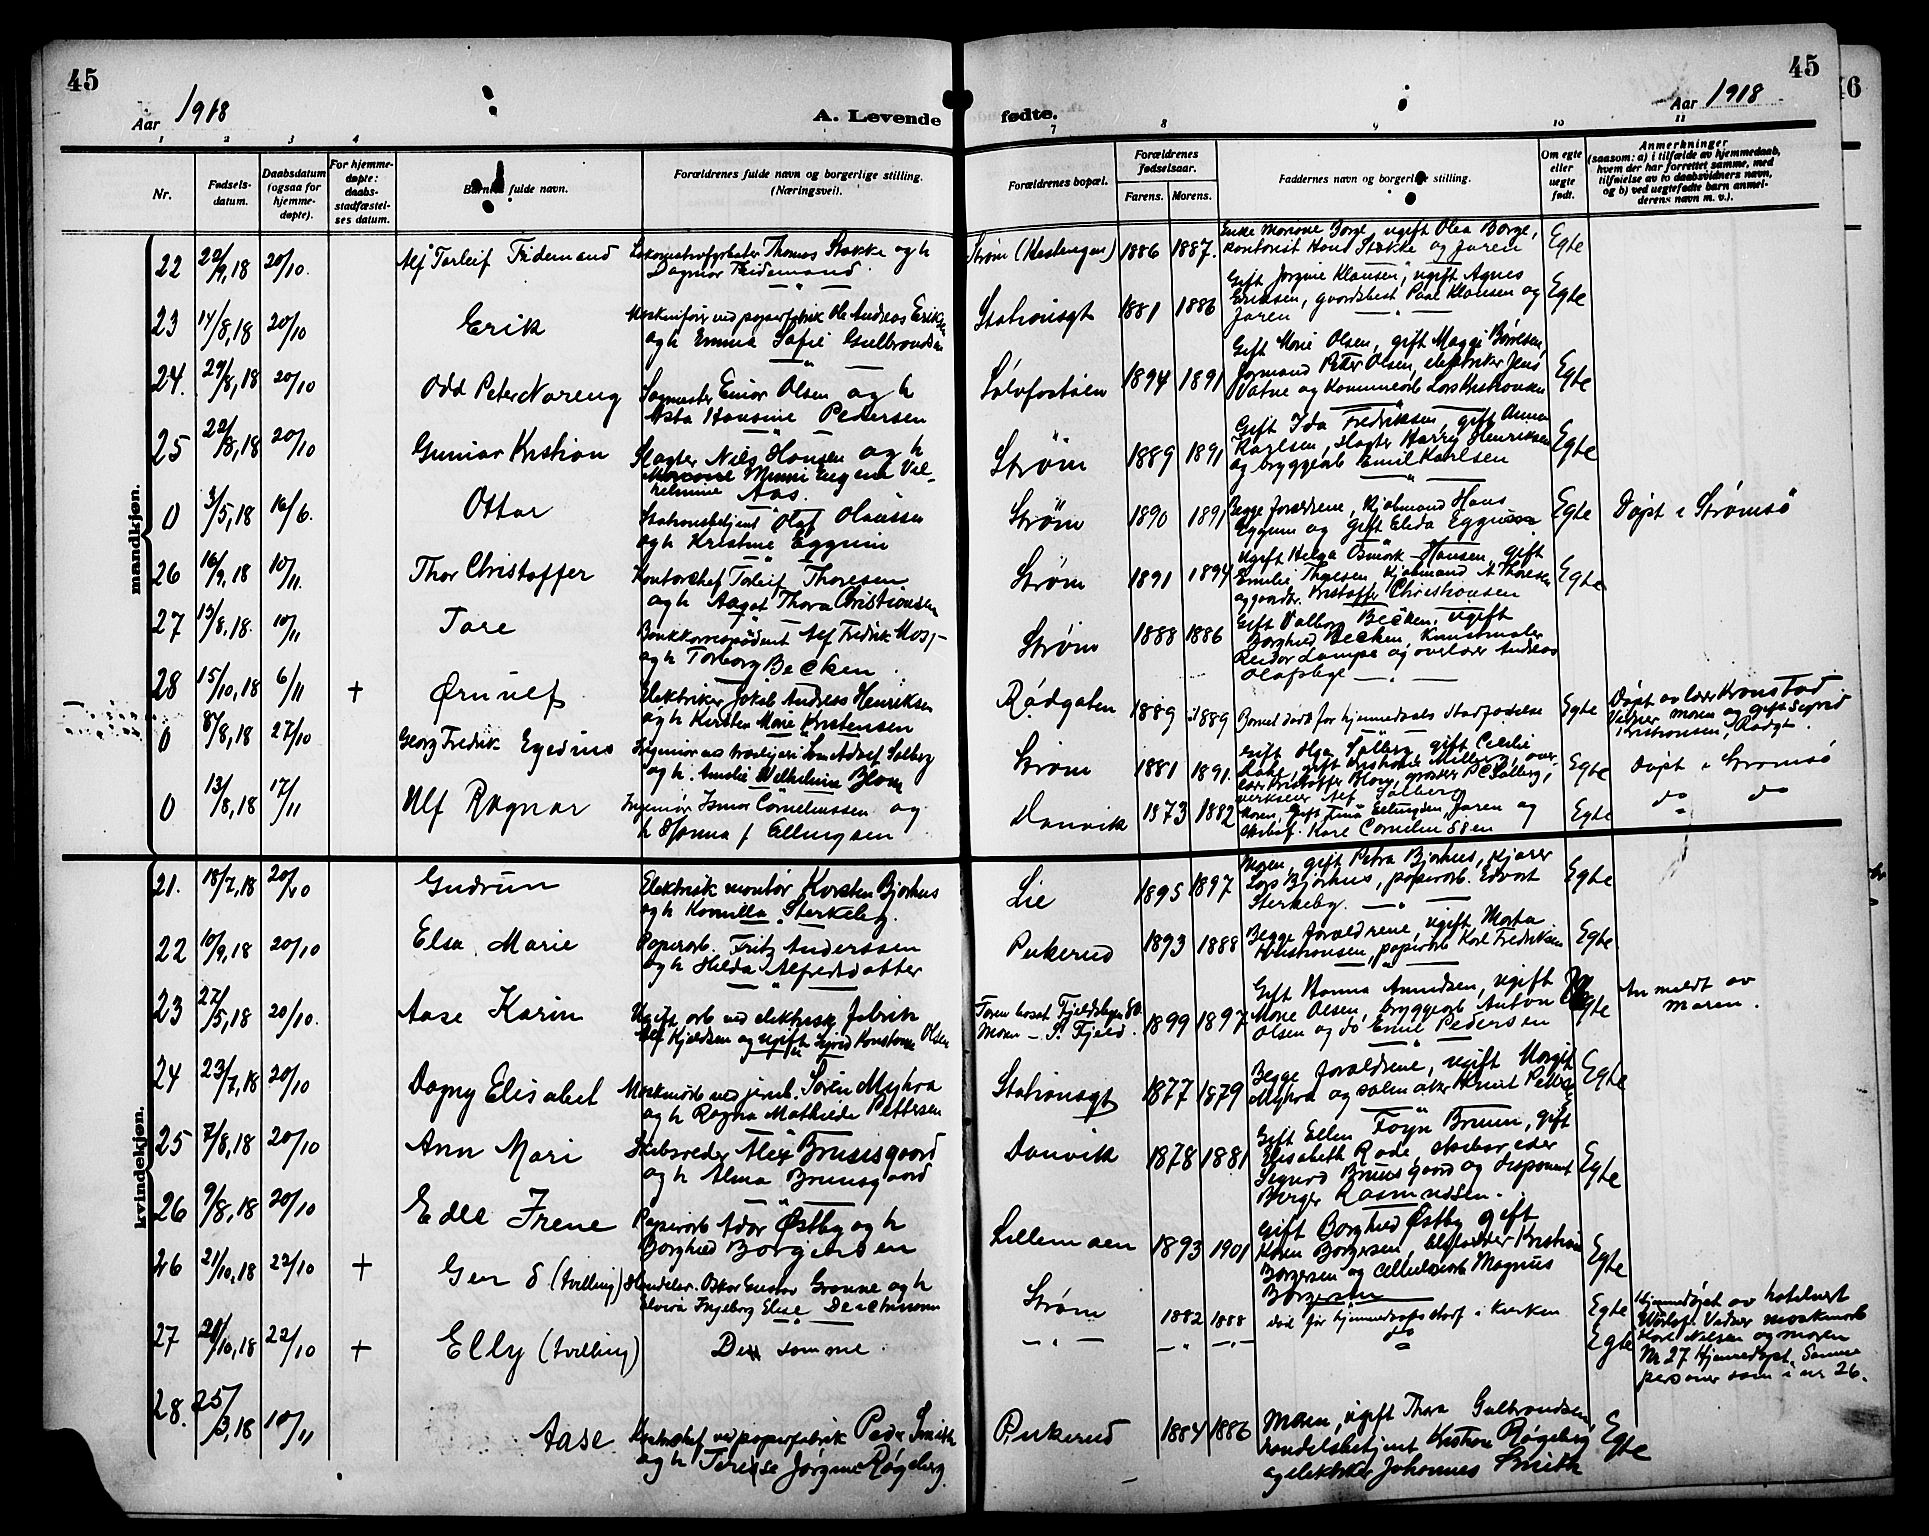 45
45
Aar 1918
A. Levende
fødte.
Aar 1918
1 2 3 4
7 8 9 10 11
Nr.
Fødsels-
datum.
Daabsdatum
(ogsaa for
hjemme-
døpte).
For hjemme-
døpte:
daabs-
stadfæstel-
ses datum.
Barnets fulde navn.
Forældrenes fulde navn og borgerlige stilling.
(Næringsvei).
Forældrenes bopæl.
Forældrenes
fødselsaar.
Farens. Morens.
Faddernes navn og borgerlige stilling.
Om egte
eller
uegte
født.
Anmerkninger
(saasom: a) i tilfælde av hjemmedaab,
hvem der har forrettet samme, med
tilføielse av to daabsvidners navn,
og b) ved uegtefødte barn anmel-
derens navn m. v.).
mandkjøn.
22 22/9,18 20/10. Alf Torleif Fidemand
Thomas Stokke og h
Dagmar Fidemand
Strøm 1886 1887.
Enke Marione Borge, ugift Olea Borge,
kontorist Hans Stokke og faren
Egte
23 14/8,18 20/10 Erik
Maskinfører ved papirfabrik Ole Andreas Eriksen
og h Emma Sofie Gulbrandsen
Stationsgt 1881 1886
Gift Jørgine Klausen, ugift Agnes
Eriksen, gaardsbest Paal Klausen og
faren
Egte
24. 29/8,18 20/10 Odd Peter Noreng
Sagmester Einar Olsen og h
Asta Hansine Pedersen
Sølvfastøien 1894 1891
Gift Marie Olsen, gift Maggi
Formand Peter Olsen, elektriker Jens
Vatne og Kommunearb Lars Kristiansen
Egte
25 22/8,18 20/10 Gunnar Kristian
Slagter Nils Hansen og h
Minni Eugenie Vil-
helmine Aas.
Strøm 1889 1891
Gift Ida Fredriksen, gift Anna
Karlsen, slagter Harry Henriksen
og bryggearb Emil Karlsen
Egte
0 3/5,18 16/6. Ottar
Stationsbetjent Olaf Olaussen
og h Kristine Eggum
Strøm 1890 1891
Begge forældrene, Kjøbmand Hans
Eggum og gift Elida Eggum
Egte
Døpt i Strømsø
26 16/9,18 10/11. Thor Christoffer
Kontorchef Torleif Thoresen
og h Aagot Thora Christiansen
Strøm 1891 1894
Ugift Helga Osmork-Hansen, gift
Emilie Thoresen, Kjøbmand A Thoresen
og gaardbr. Kristoffer Christiansen
Egte
27 13/8,18. 10/11 Tore
Bankkorrespondent Alf Fredrik
og h Torborg Becken
Strøm 1888 1886
Gift Valborg Becken, ugift
Borghild Becken, Kunstmaler
Reidar og overlærer Andreas
28 15/10,18 6/11 + Ørnulf
Elektriker Jakob Andreas Henriksen
og h Kirsten Marie Kristensen
Rødgaten 1889 1889
Barnet døde før hjemmedaabs stadfæstelse
Egte
Døpt av lærer Kronstad
Vidner moren og gift Sigrid
Kristiansen, Rødgt.
0 8/8,18 27/10 Georg Fredrik Egedius
og h. Amelie Wilhelmine Blom
Strøm 1881 1891.
Gift Olga Solberg, gift Cecilie
Egte
Døpt i Strømsø
0 13/8,18 17/11 Ulf Ragnar
Ingeniør Corneliussen og
h Hanna f Ellingsen
Danvik 1873 1882
Moren, gift Ellingsen, faren og
Karl Corneliussen
Egte
do do
kvindekjøn.
21. 18/7,18 20/10 Gudrun
Elektrisk montør Karsten Bjørhus
og h Kamilla Sterkeby.
Lie 1895 1897
Moren, gift Petra Bjørhus, kjører
Lars Bjørhus, papirarb. Edvart
Sterkeby.
Egte
22 10/9,18 20/10 Elsa Marie
Papirarb. Fritz Anderssen
og h Hilda Alfredsdatter
Pukerud 1893 1888
Begge forældrene, ugift Marta
Kristiansen, papirarb Karl Fredriksen
Egte
23 27/5,18 20/10. Aase Karin
Ugift arb ved elektrisk fabrik
Alf Kjeldsen og ugift Sigrid Konstanse Olsen
Faren bosat
Moren – St. Fjeld. 1899 1897
Gift Hanna Amundsen, ugift
Marie Olsen, bryggearb Anton
Olsen og do Emil Pedersen
Egte
Anmeldt av
moren.
24 23/7,18 20/10 Dagny Elisabet
Maskinarb ved jernb. Søren Myhra
og h Ragna Mathilde Pettersen
Stationsgt 1877 1879
Begge forældrene, ugift Margit
Myhra og salmaker Knut Petters
Egte
25 7/8,18 20/10 Ann Mari
Skibsreder Alex Bruusgaard
og h Alma Bruusgaard
Danvik 1878 1881
Gift Ellen Føyn Bruun, gift
Elisabeth Rode, skibsreder
Sigurd Bruusgaard og disponent
Birger Rasmussen.
Egte
26 9/8,18 20/10 Edle Irene
Papirarb Adar Østby og h
Borghild Borgersen
Lillemoen 1893 1901
Gift Borghild Østby gift
Karen Borgersen, Kristian
Borgersen og cellulosearb Magnus
Borgersen
Egte
26 21/10,18 22/10 + Gerd S (tvilling)
Handeler. Oskar Gustav Grønne og h
Elvira Ingeborg Elise Deichmann
Strøm 1882 1888
død før hjemmedaabs stadf i kirken
Egte
Hjemmedøpt av
Vidner maskinarb
Karl Nilsen og moren
27 21/10,18 22/10 + Elly (tvilling)
De samme
— " — — " — — " —
do
Egte
Nr 27 Hjemmedøpt. Samme
personer som i nr 26.
28. 25/3,18 10/11 Aase
Kontorchef ved papirfabrik Peder Smith
og h Terese Jørgine Røgeberg
Pukerud 1884 1886
Moren, ugift Thora Gulbrandsen,
handelsbetjent Kristian Røgeberg
og elektriker Johannes Smith
Egte